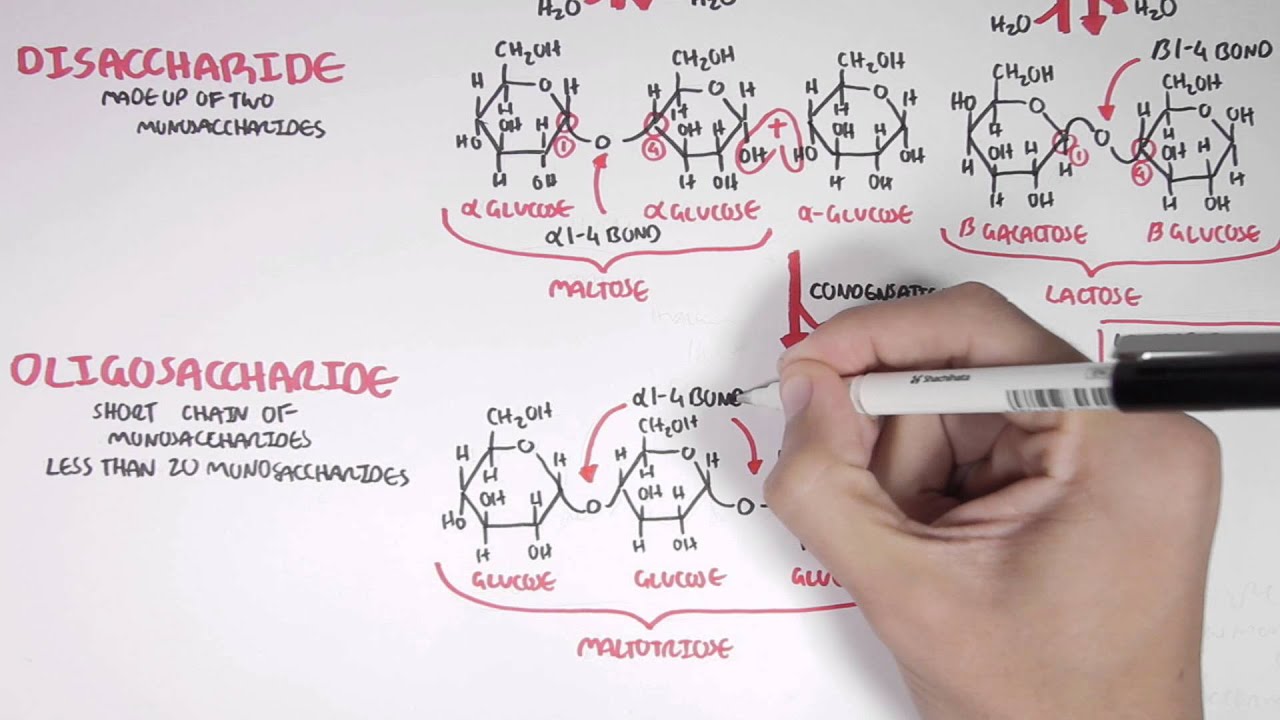 H₂O H₂O
H₂O H₂O
DISACCHARIDE
MADE UP OF TWO
MONOSACCHARIDES
CH₂OH CH₂OH CH₂OH CH₂OH CH₂OH
β1-4 BOND
H O H H O H H O H HO O H O OH
H OH H H OH H H OH H H OH H H OH H
HO 1 O 4 OH + HO OH H 1 O 4 H
H OH H OH H OH H OH H OH
α GLUCOSE α GLUCOSE α-GLUCOSE β GALACTOSE β GLUCOSE
α1-4 BOND
MALTOSE LACTOSE
OLIGOSACCHARIDE
SHORT CHAIN OF
MONOSACCHARIDES
LESS THAN 20 MONOSACCHARIDES
α1-4 BOND
Shachihata
CH₂OH CH₂OH
H O H H O H
H OH H H OH H
HO O O
H OH H OH
GLUCOSE GLUCOSE
MALTOTRIOSE